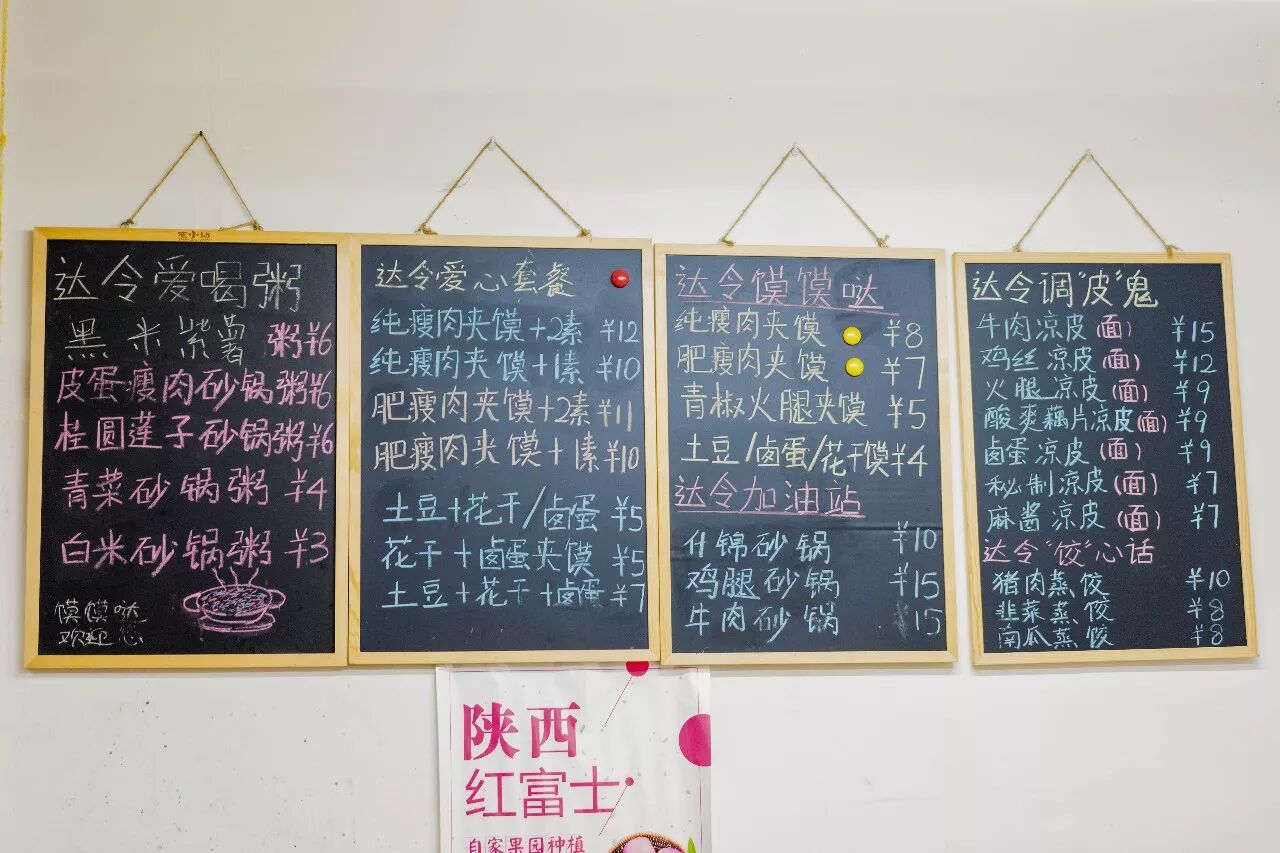 达令爱喝粥
黑米紫薯粥¥6
皮蛋瘦肉砂锅粥¥6
桂圆莲子砂锅粥¥6
青菜砂锅粥 ¥4
白米砂锅粥 ¥3
馍馍哒
欢迎您
达令爱心套餐
纯瘦肉夹馍+2素 ¥12
纯瘦肉夹馍+1素 ¥10
肥瘦肉夹馍+2素 ¥11
肥瘦肉夹馍+1素 ¥10
土豆+花干/卤蛋 ¥5
花干+卤蛋夹馍 ¥5
土豆+花干+卤蛋 ¥7
达令馍馍哒
纯瘦肉夹馍 ¥8
肥瘦肉夹馍 ¥7
青椒火腿夹馍 ¥5
土豆/卤蛋/花干馍 ¥4
达令加油站
什锦砂锅 ¥10
鸡腿砂锅 ¥15
牛肉砂锅 ¥15
达令调"皮"鬼
牛肉凉皮(面) ¥15
鸡丝凉皮(面) ¥12
火腿凉皮(面) ¥9
酸爽藕片凉皮(面) ¥9
卤蛋凉皮(面) ¥9
秘制凉皮(面) ¥7
麻酱凉皮(面) ¥7
达令"饺"心话
猪肉蒸饺 ¥10
韭菜蒸饺 ¥8
南瓜蒸饺 ¥8
陕西
红富士
自家果园种植